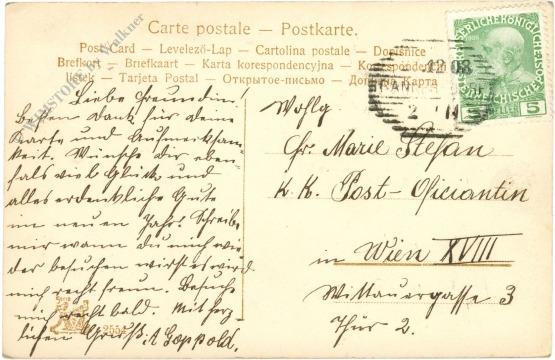 Carte postale – Postkarte.
Post Card – Levelező-Lap – Cartolina postale – Dopisnice
Brefkort – Briefkaart – Karta korespondencyjna – Korespondenční
lístek – Tarjeta Postal – Открытое-письмо – Дописна Карта
WEBSTORE by Walkner
12 08
2
5
Liebe Freundin!
Besten Dank für deine
Karte und Aufmerksam-
keit. Wünsche dir eben-
falls viel Glück und
alles erdenkliche Gute
im neuen Jahr. Schreibe
mir wann du mich wie-
der besuchen wirst es wird
mich recht freun. Besuche
mich recht bald. Mit herz
lichen Gruß. A Goppold.
2554
Wohlg
Fr. Marie Stefan
K. K. Post-Oficiantin
in Wien XVIII
Wittauergasse 3
Thür 2.